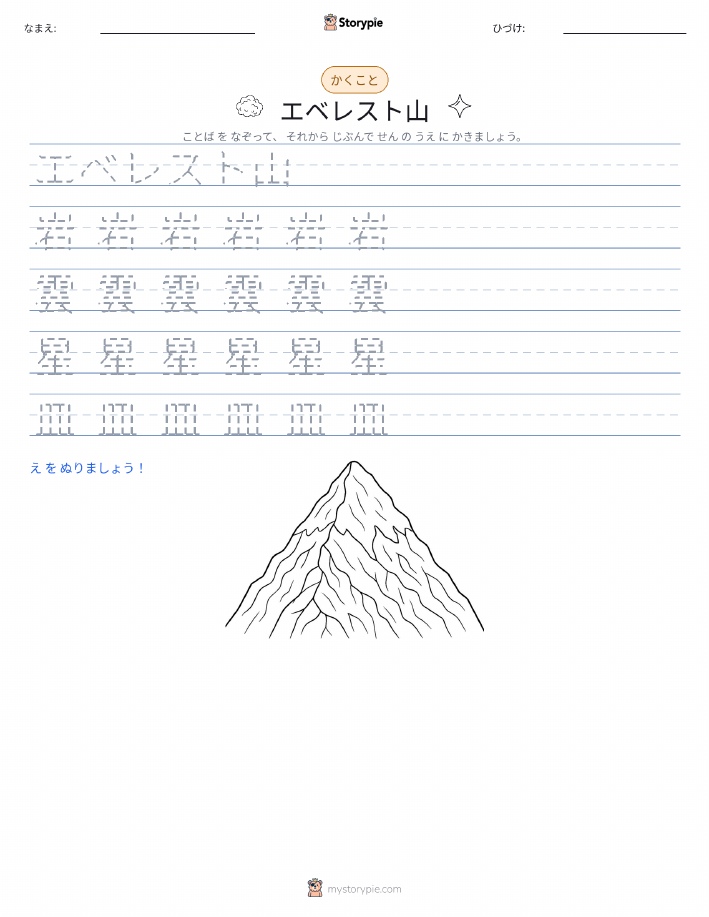 なまえ: Storypie ひづけ:
かくこと
エベレスト山
ことば を なぞって、 それから じぶんで せん の うえ に かきましょう。
エベレスト山
岩 岩 岩 岩 岩 岩
雲 雲 雲 雲 雲 雲
星 星 星 星 星 星
皿 皿 皿 皿 皿 皿
え を ぬりましょう！
mystorypie.com